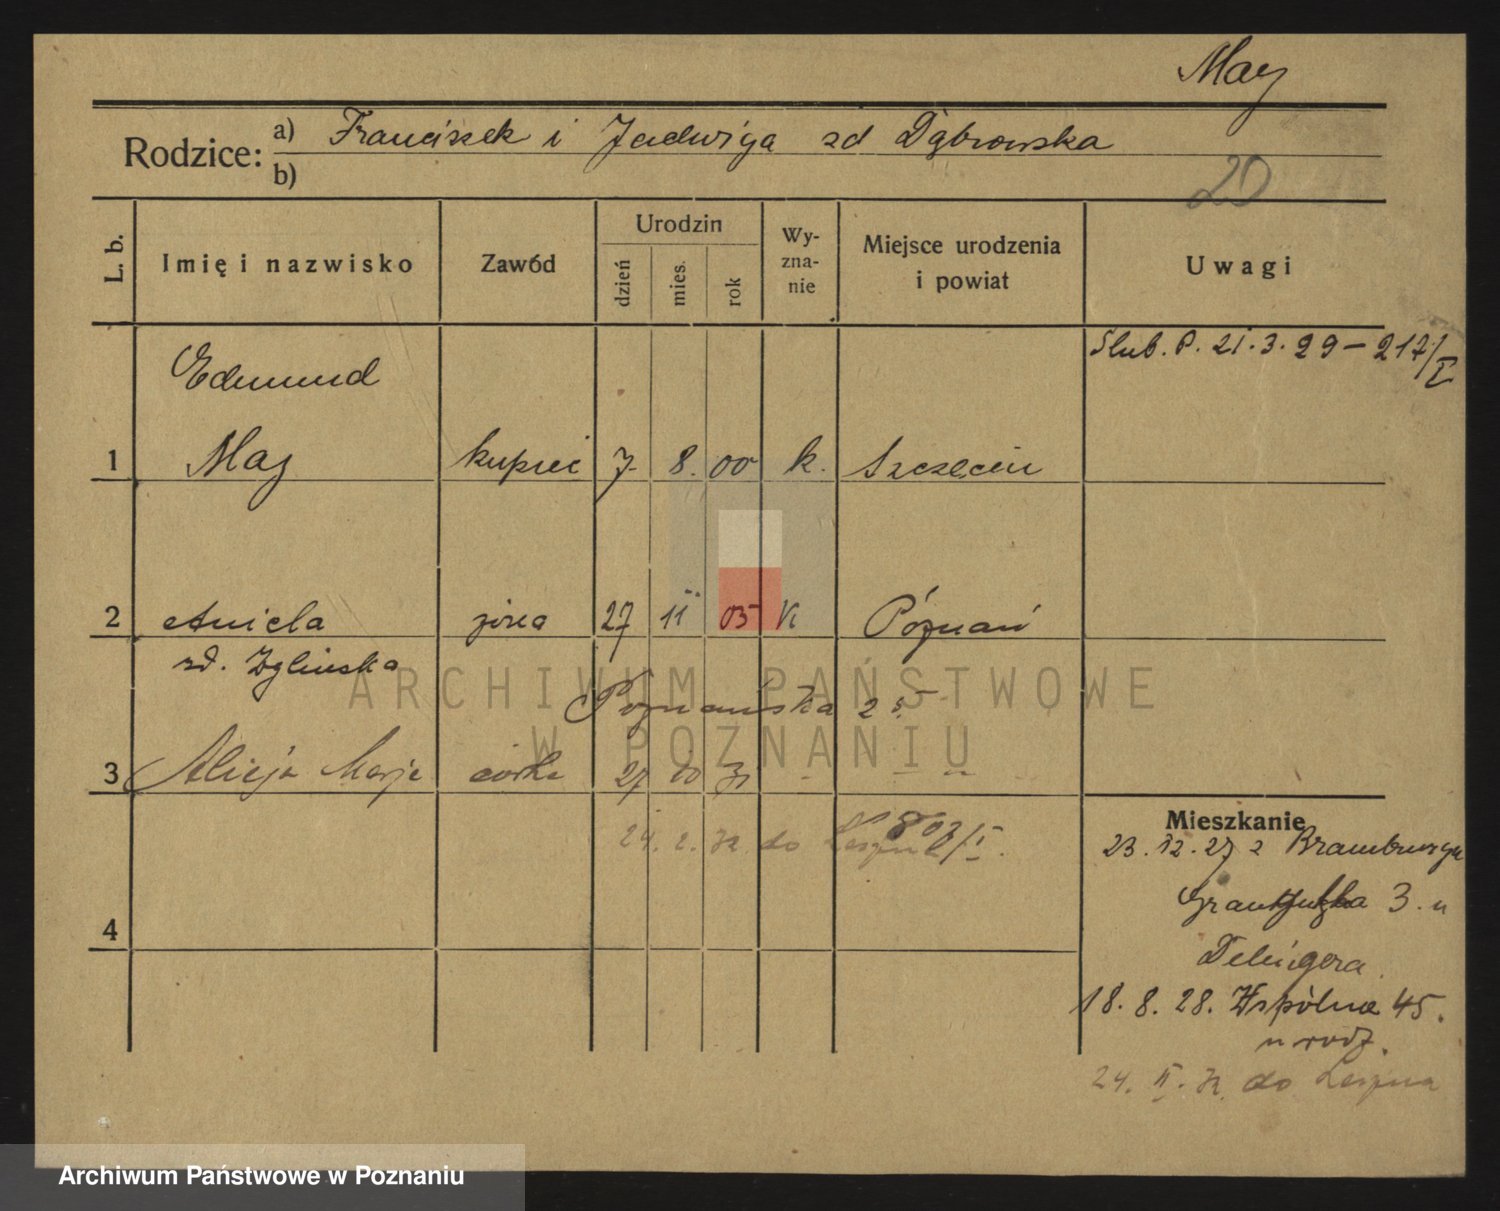 May
Rodzice: a) Franciszek i Jadwiga zd Dąbrowska
b)
20
L. b. Imię i nazwisko Zawód Urodzin dzień mies. rok Wy-zna-nie Miejsce urodzenia i powiat Uwagi
Ślub. P. 21.3.29 – 217/I
Edmund
1 May kupiec 7. 8. 00 k. Szczecin
2 Aniela żona 27 11 05 K Poznań
zd. Zglińska
Poznańska 25
3 Alicja Marja córka 27 10 31 - - „ -
24. 2. 32 do Leszna 803/I.
Mieszkanie
23.12.27 z Bramburga
3. u
Delingera
4
18.8.28. Wspólna 45.
u rodz.
24. II. 32 do Leszna
ARCHIWUM PAŃSTWOWE
W POZNANIU
Archiwum Państwowe w Poznaniu